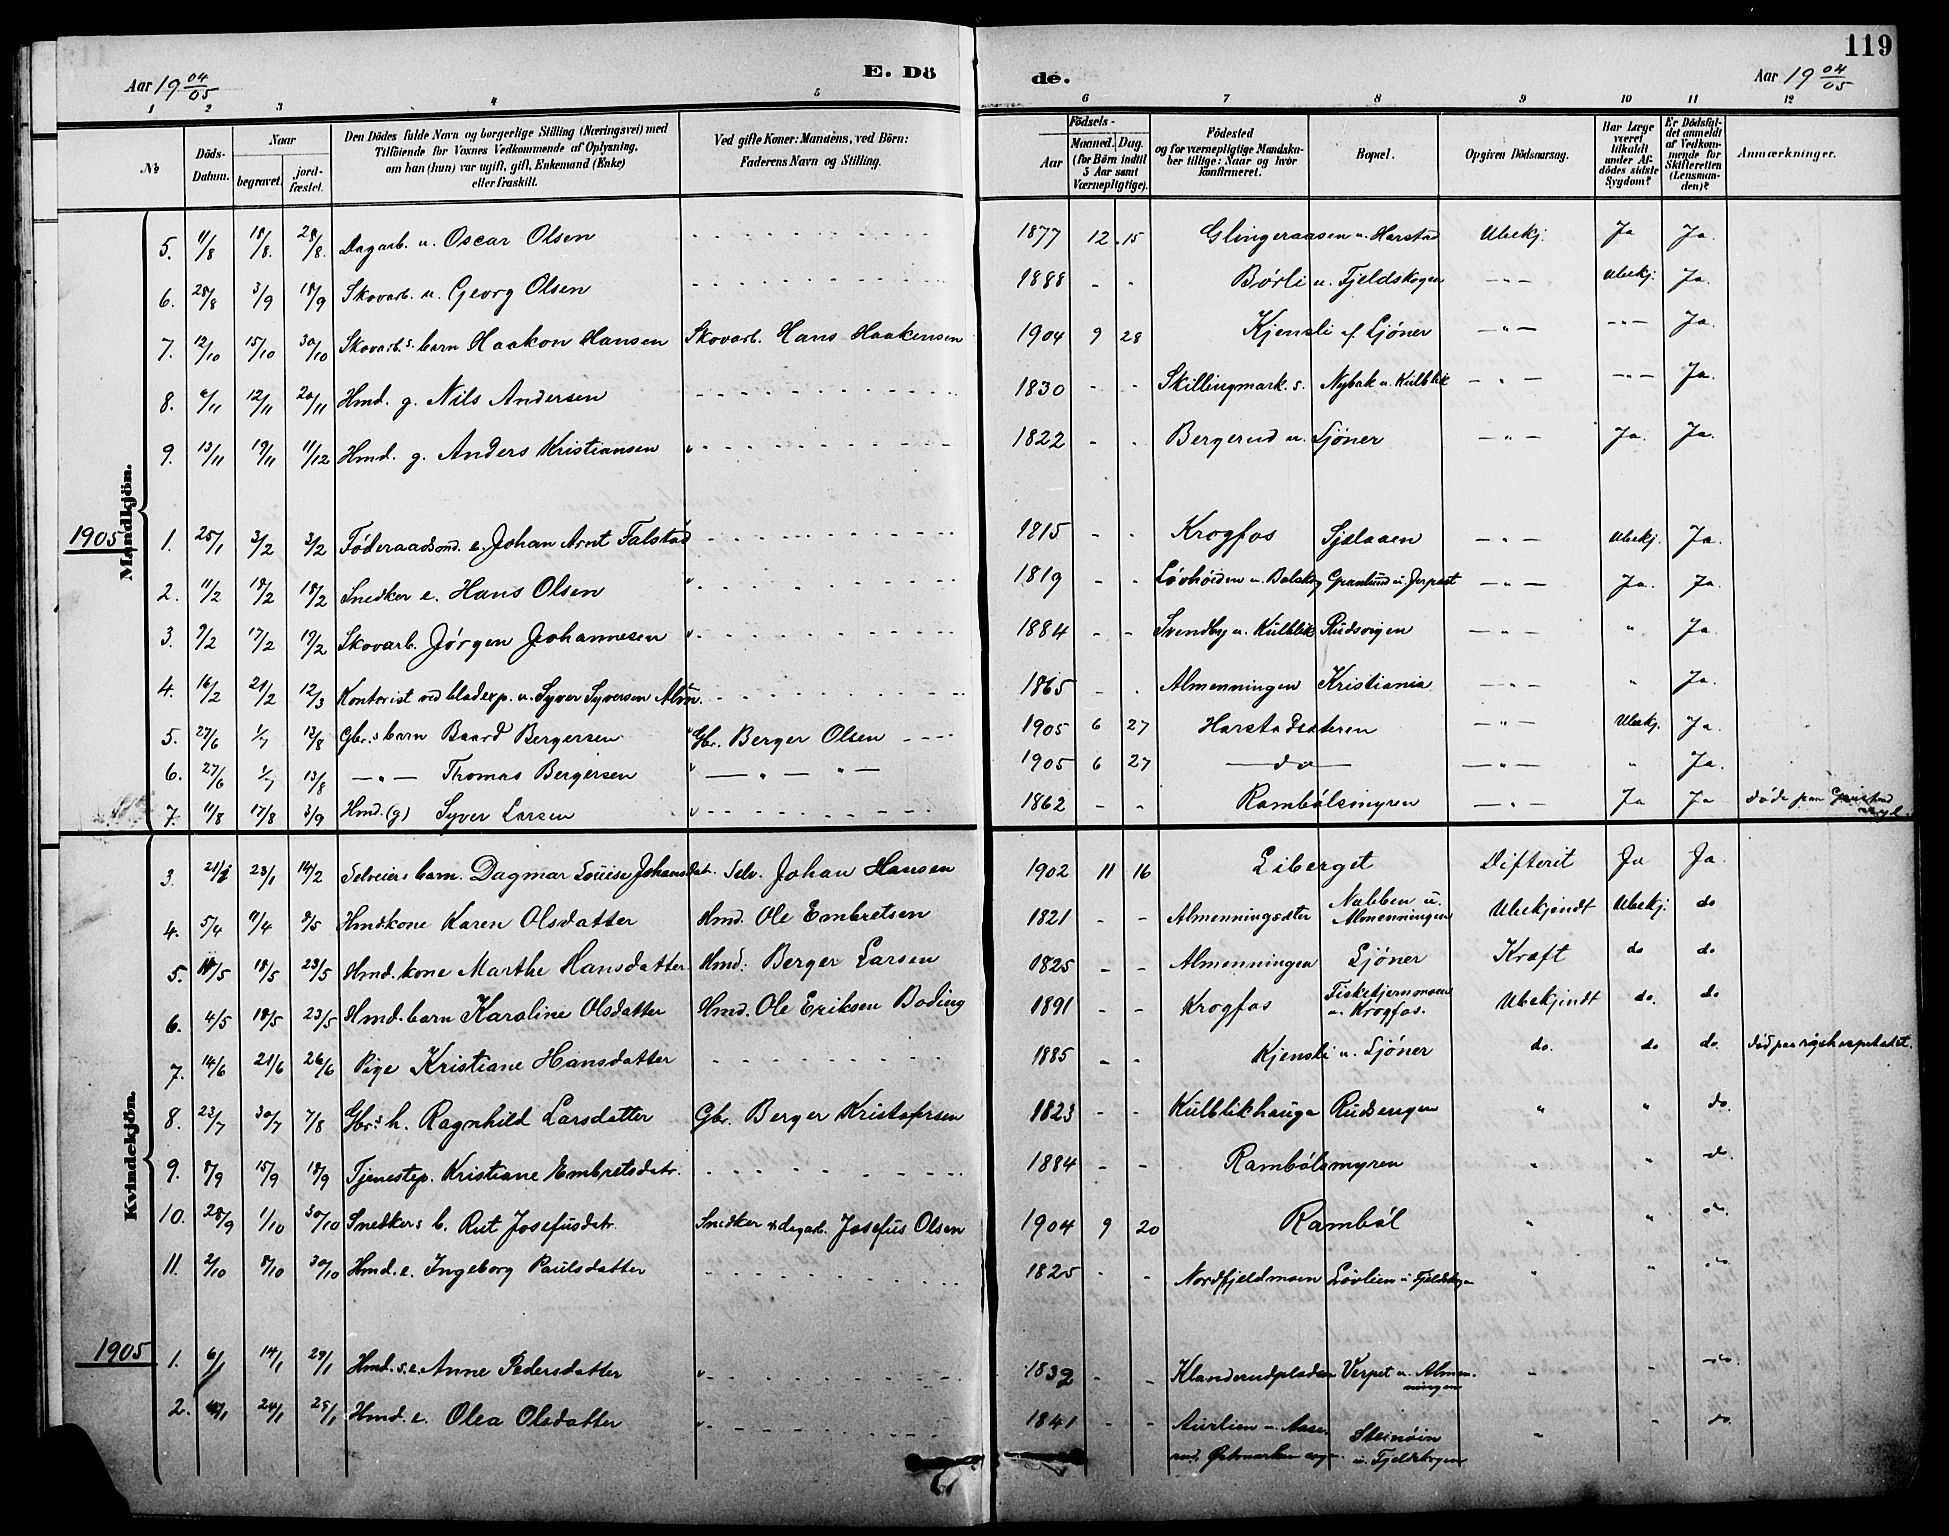 119
Aar 19 04/05 E. Dö de. Aar 19 04/05
1 2 3 4 5 6 7 8 9 10 11 12
№ Döds-Datum. Naar begravet. jord-fæstet. Den Dödes fulde Navn og borgerlige Stilling (Næringsvei) med Tilföiende for Voxnes Vedkommende af Oplysning, om han (hun) var ugift, gift, Enkemand (Enke) eller fraskilt. Ved gifte Koner: Mandens, ved Börn: Faderens Navn og Stilling. Födsels- Aar Maaned. Dag. (for Börn indtil 5 Aar samt Værnepligtige). Födested og for værnepligtige Mandska-ber tillige: Naar og hvor konfirmeret. Bopæl. Opgiven Dödsaarsag. Har Læge været tilkaldt under Af-dödes sidste Sygdom? Er Dödsfal-det anmeldt af Vedkom-mende for Skifteretten (Lensman-den)? Anmærkninger.
Mandkjön.
5. 11/8 18/8. 28/8. Dagarb. u. Oscar Olsen 1877 12 15 Glingeraasen u. Harstad Ubekj. Ja Ja.
6. 28/8 3/9 18/9 Skovarb. u. Georg Olsen 1888 - - Børli u. Fjeldskogen - " - Ubekj. Ja.
7. 12/10 15/10 30/10 Skovarb.s barn Haakon Hansen Skovarb. Hans Haakensen 1904 9 28 Kjensli u. Ljöner - " - - " - Ja.
8. 6/11 12/11 20/11 Hmd. g. Nils Andersen 1830 - - Skillingmark s. Nybak u. Kulblik - " - - " - Ja.
9. 13/11 19/11 11/12 Hmd. g. Anders Kristiansen " 1822 - - Bergerud u. Ljöner - " - Ja. Ja.
1905
1. 25/1 3/2 3/2 Föderaadsmd. e. Johan Arnt Falstad 1815 - - Krogfos Sjølaaen - " - Ubekj. Ja.
2. 11/2 18/2 18/2 Snedker e. Hans Olsen " 1819 - - Lövhöiden u. Bolskog Granlund u. Jerpset - " - Ja. Ja.
3. 9/2 17/2 19/2 Skovarb. Jörgen Johannesen " 1884 - - Svendby u. Kulblik Rudsvigen - " - " Ja.
4. 16/2 21/2 12/3 Kontorist ved bladexp. u. Syver Syversen Alm. 1865 - - Almenningen Kristiania - " - " Ja.
5. 27/6 1/7 13/8 Gbr.s barn Baard Bergersen " Gbr. Berger Olsen 1905 6 27 Harstadsæteren - " - Ubekj. Ja.
6. 27/6 1/7 13/8 - " - Thomas Bergersen " - " - " - 1905 6 27 - do - - " - " Ja.
7. 11/8 17/8 3/9 Hmd. (g) Syver Larsen " 1862 - - Rambölsmyren - " - Ja Ja Döde paa Gaustad asyl.
Kvindekjön.
3. 21/1 23/1 14/2 Selveiers barn. Dagmar Louise Johansdatr. Selv. Johan Hansen 1902 11 16 Liberget Difterit Ja Ja.
4. 5/4 11/4 8/5 Hmdkone Karen Olsdatter Hmd. Ole Embretsen 1821 - - Almenningsæter Nabben u. Almenningen Ubekjendt Ubekj. do
5. 11/5 18/5 23/5 Hmd. kone Marthe Hansdatter Hmd. Berger Larsen 1825 - - Almenningen Ljöner Kræft do do
6. 4/5 18/5 23/5 Hmd. barn Karoline Olsdatter Hmd. Ole Eriksen Boding 1891 - - Krogfos Fisketjernmoen u. Krogfos. Ubekjendt do. do
7. 14/6 21/6 26/6 Pige Kristiane Hansdatter 1885 - - Kjensli u. Ljöner do. do do. död paa rigshospitalet.
8. 23/7 30/7 7/8 Gbr.s h. Ragnhild Larsdatter Gbr. Berger Kristofersen 1823 - - Kulblikhauge Rudsengen " " do.
9. 8/9 15/9 18/9 Tjenestep. Kristiane Embretsdatr. 1884 - - Rambölsmyren " " do.
10. 28/9 1/10 30/10 Snedkers b. Rut Josefusdatr. Snedker & dagarb. Josefus Olsen 1904 9 20 Ramböl " " do.
11. 2/10 8/10 30/10 Hmd. e. Ingeborg Paulsdatter 1825 - - Nordfjeldmoen Lövlien u. Fjeldskogen " " do.
1905
1. 6/1 14/1 29/1 Hmd. s. e. Anne Pedersdatter " 1832 - - Klanderudpladsen Verpet u. Almenningen " " do.
2. 24/1 29/1 Hmd. e. Olea Olsdatter " 1841 - - Aurlien u. Aaserud, Østmarken sogn Steinöin u. Fjeldskogen " " do.